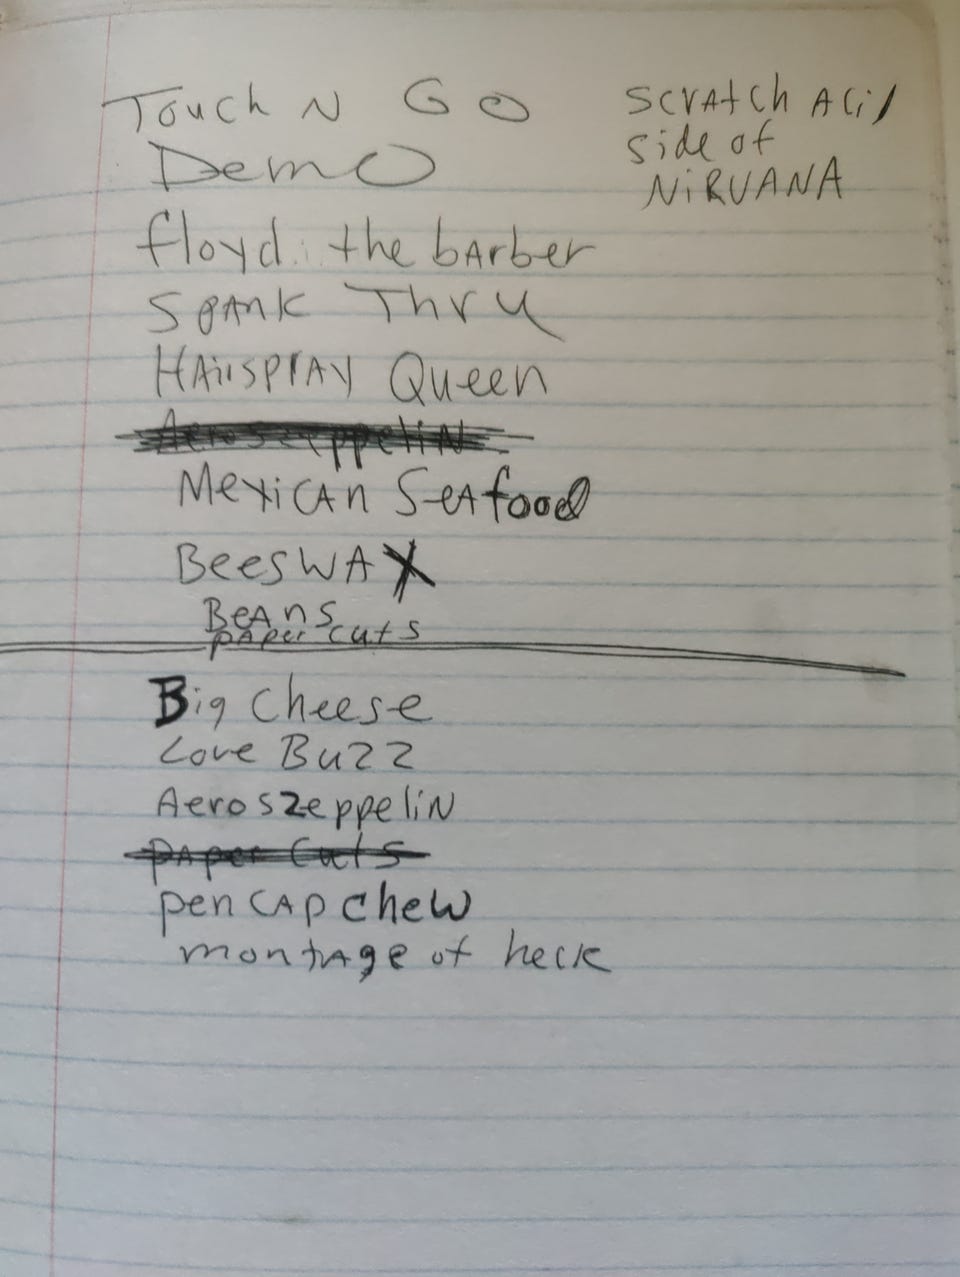 Touch N GO
Demo
scratch Acid
side of
NiRVANA
floyd the barber
Spank Thru
HAirsprAY Queen
Aeroszeppelin
Mexican SeAfood
BeesWAX
BeAns
pAper cuts
Big Cheese
Love Buzz
Aeroszeppelin
pAper Cuts
pen CAp Chew
montage of heck